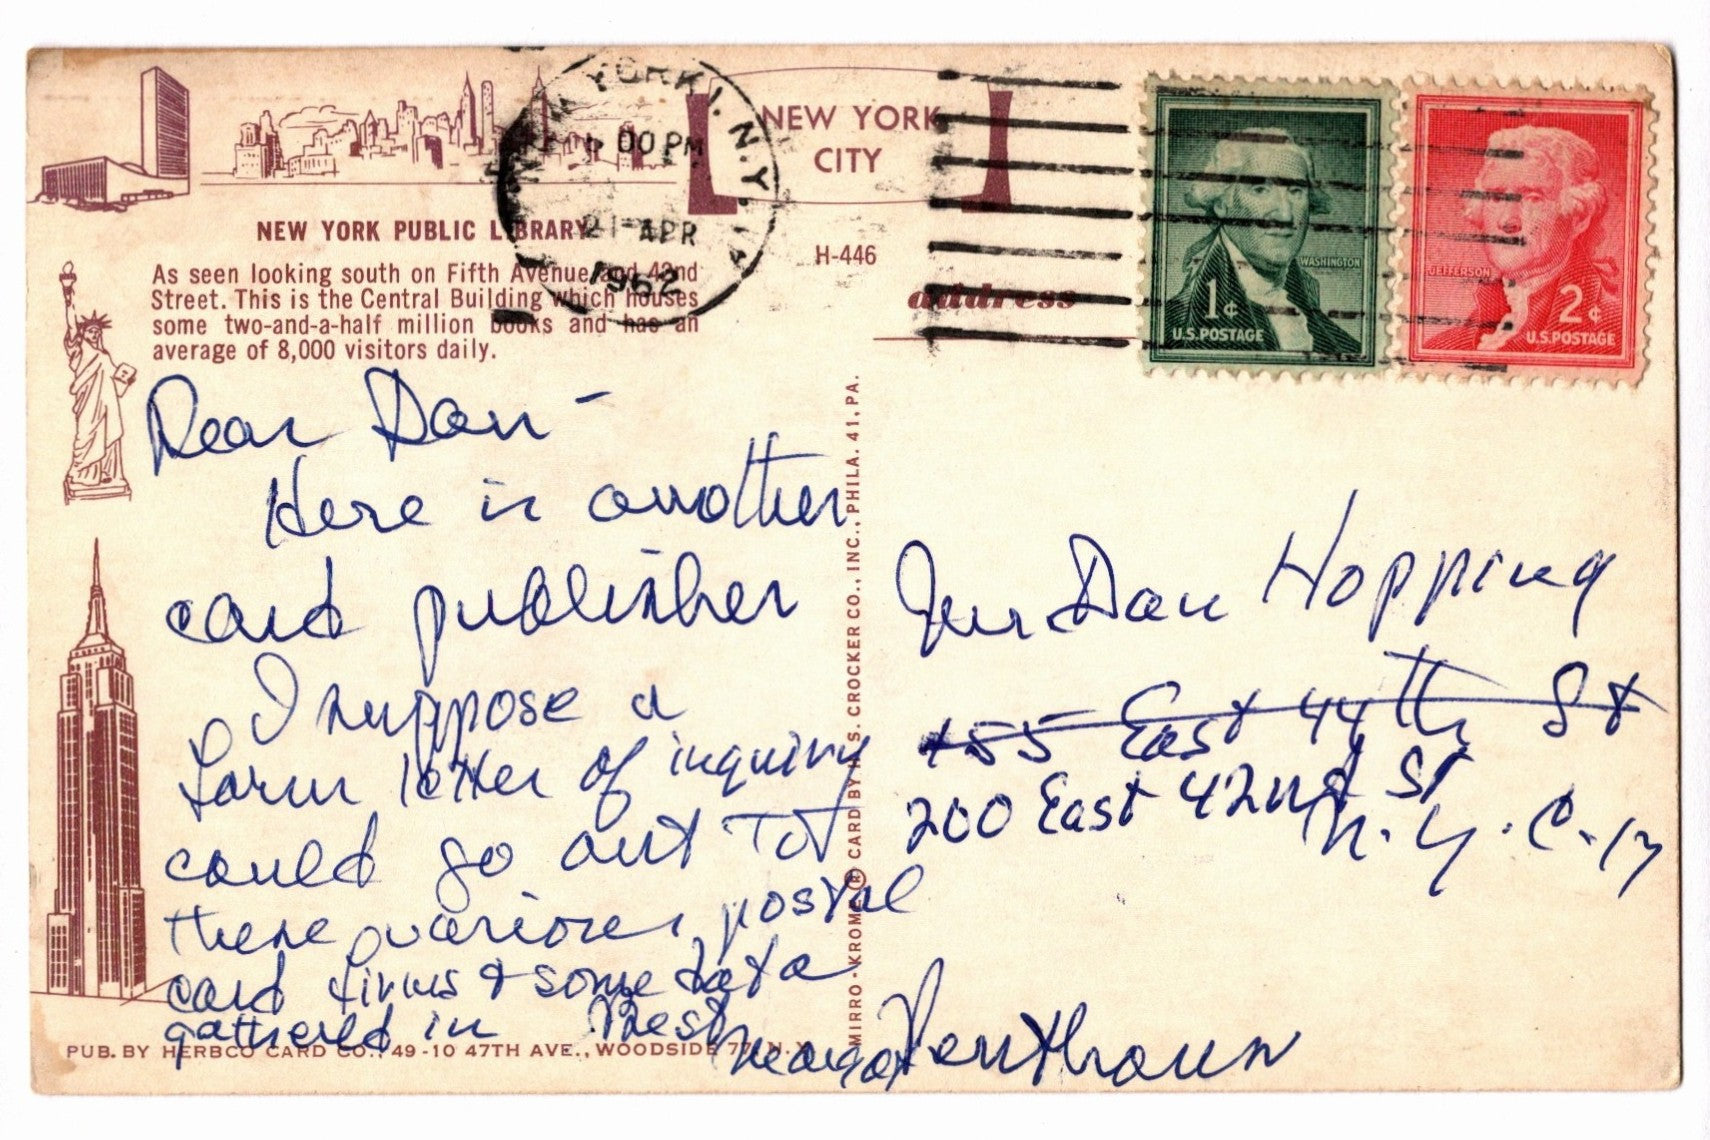 NEW YORK, N.Y.
00 PM
21 APR
1962
NEW YORK
CITY
WASHINGTON
1¢
U.S.POSTAGE
JEFFERSON
2¢
U.S.POSTAGE
NEW YORK PUBLIC LIBRARY
As seen looking south on Fifth Avenue and 42nd
Street. This is the Central Building which houses
some two-and-a-half million books and has an
average of 8,000 visitors daily.
H-446
address
Dear Dan -
Here is another
card publisher
I suppose a
form letter of inquiry
could go out to
these various postal
card firms & some data
gathered in Best
MIRRO-KROME ® CARD BY H.S. CROCKER CO., INC., PHILA. 41, PA.
Mr Dan Hopping
155 East 44th St
200 East 42nd St
N.Y.C-17
PUB. BY HERBCO CARD CO., 49-10 47TH AVE., WOODSIDE 77, N.Y.